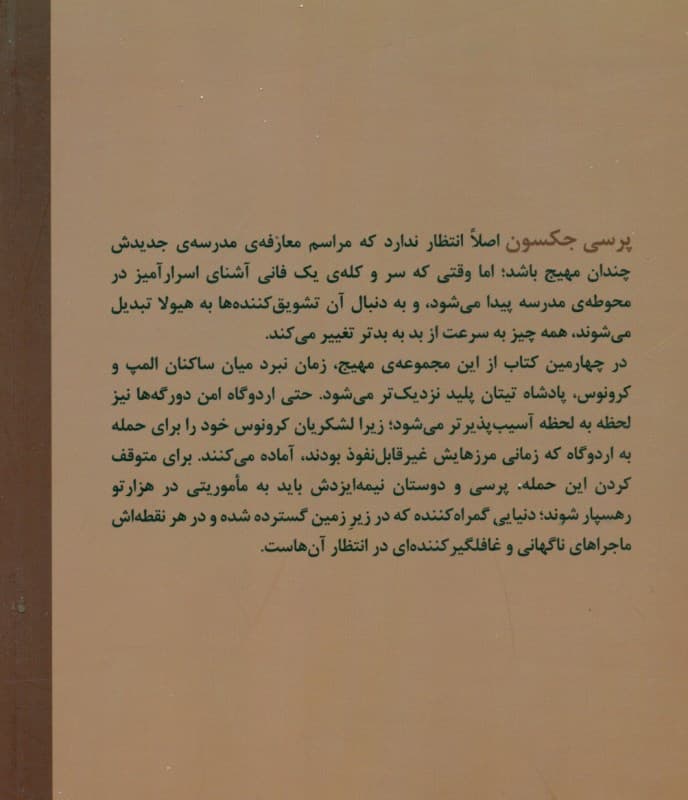 پرسی جکسون اصلاً انتظار ندارد که مراسم معارفه‌ی مدرسه‌ی جدیدش
چندان مهیج باشد؛ اما وقتی که سر و کله‌ی یک فانی آشنای اسرارآمیز در
محوطه‌ی مدرسه پیدا می‌شود، و به دنبال آن تشویق‌کننده‌ها به هیولا تبدیل
می‌شوند، همه چیز به سرعت از بد به بدتر تغییر می‌کند.
در چهارمین کتاب از این مجموعه‌ی مهیج، زمان نبرد میان ساکنان المپ و
کرونوس، پادشاه تیتان پلید نزدیک‌تر می‌شود. حتی اردوگاه امن دورگه‌ها نیز
لحظه به لحظه آسیب‌پذیرتر می‌شود؛ زیرا لشکریان کرونوس خود را برای حمله
به اردوگاه که زمانی مرزهایش غیرقابل‌نفوذ بودند، آماده می‌کنند. برای متوقف
کردن این حمله، پرسی و دوستان نیمه‌ایزدش باید به مأموریتی در هزارتو
رهسپار شوند؛ دنیایی گمراه‌کننده که در زیرِ زمین گسترده شده و در هر نقطه‌اش
ماجراهای ناگهانی و غافلگیرکننده‌ای در انتظار آن‌هاست.